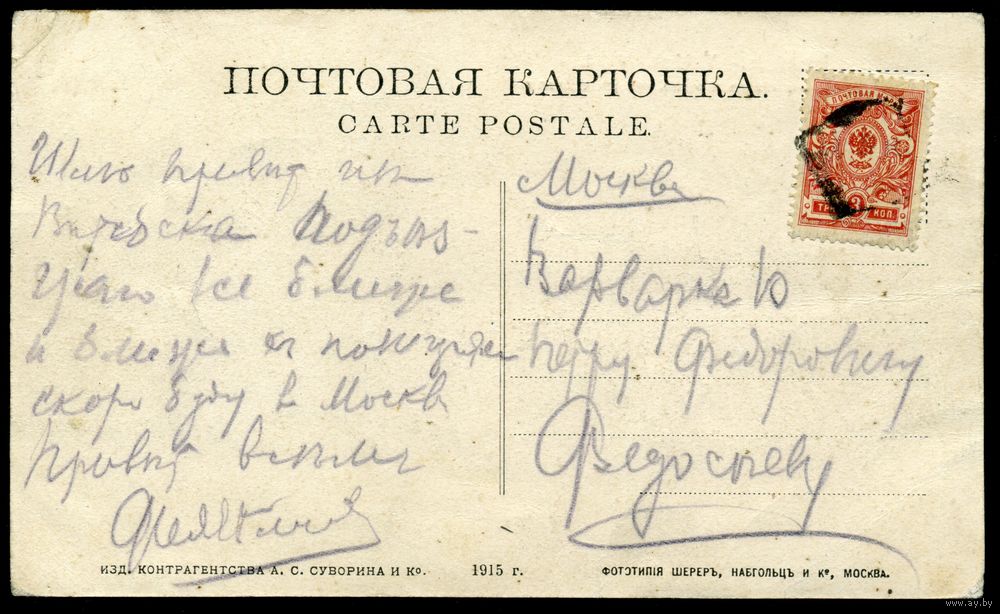 ПОЧТОВАЯ КАРТОЧКА.
CARTE POSTALE.
ПОЧТОВАЯ
3
КОП.
Шлю привѣт из
Витебска Подъѣз-
жаю все ближе
и ближе и
скоро буду в Москвѣ
Привѣт всѣм
Москва
Варварка 10
Петру Федоровичу
Федосѣеву
ИЗД. КОНТРАГЕНТСТВА А. С. СУВОРИНА И Ко. 1915 г. ФОТОТИПІЯ ШЕРЕРЪ, НАБГОЛЬЦЪ И Ко, МОСКВА.
www.ay.by